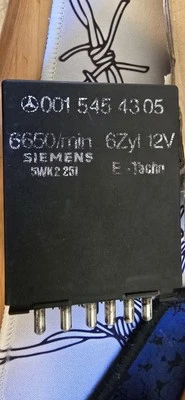 001 545 43 05
6650/min 6Zyl 12V
SIEMENS
5WK2 251 E-Tacho